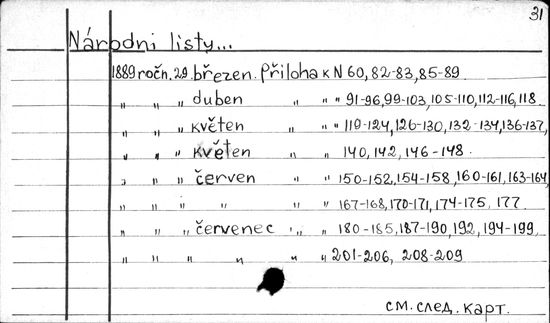 31
Národni listy...
1889 ročn. 29. březen. Příloha к N 60, 82-83, 85-89
" " " duben " " " 91-96, 99-103, 105-110, 112-116, 118
" " " květen " " " 119-124, 126-130, 132-134, 136-137,
" " " květen " " 140, 142, 146-148.
" " " červen " " 150-152, 154-158, 160-161, 163-164,
" " " " " " 167-168, 170-171, 174-175, 177
" " " červenec " " 180-185, 187-190, 192, 194-199,
" " " " " " 201-206, 208-209
см. след. карт.